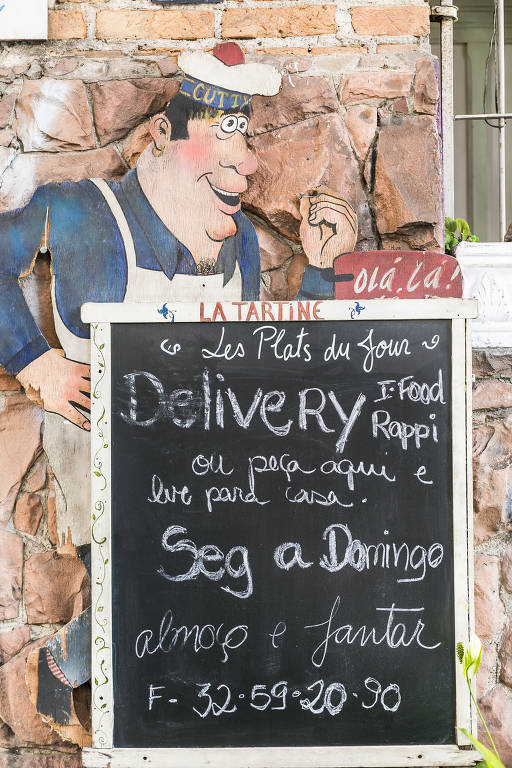 CUTTY
OLÁ, LÁ!
LA TARTINE
Les Plats du Jour
Delivery
I-Food
Rappi
ou peça aqui e
leve para casa.
Seg a Domingo
almoço e Jantar
F- 32.59.20.90